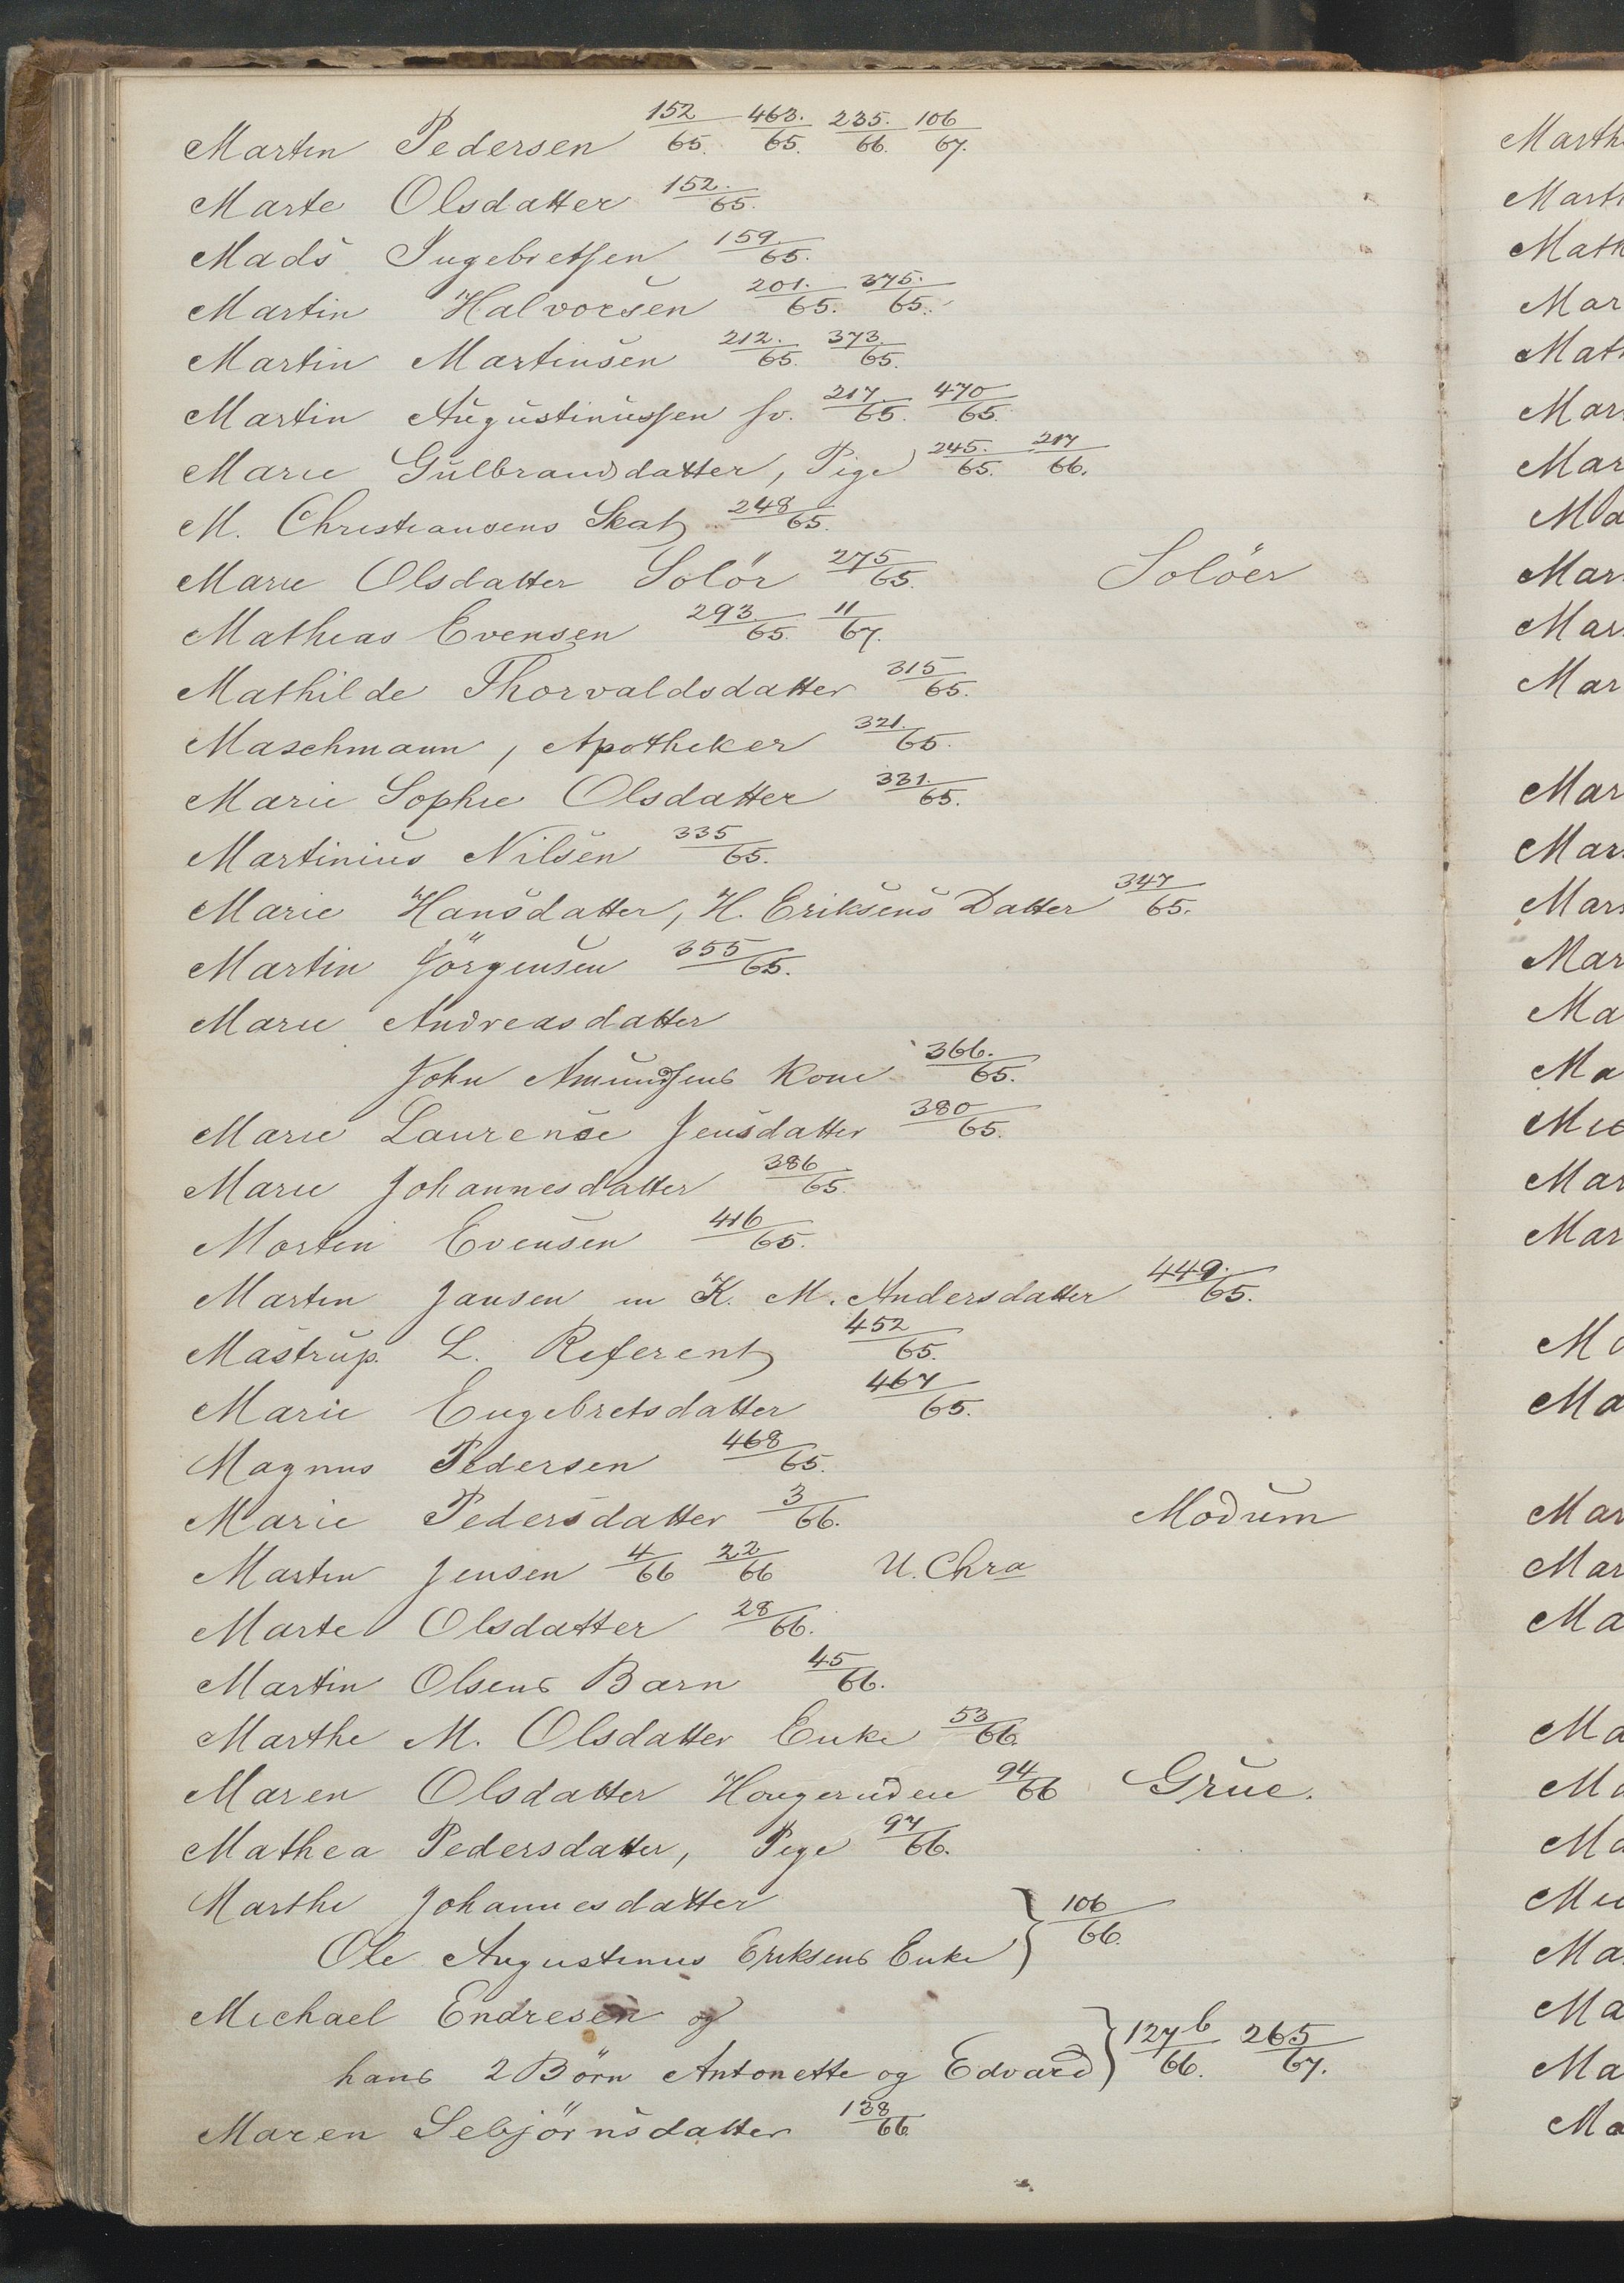 Martin Pedersen 152/65. 463./65. 235./66. 106/67.
Marte Olsdatter 152./65.
Mads Ingebretsen 159./65.
Martin Halvorsen 201./65. 375./65.
Martin Martinsen 212./65. 373./65.
Martin Augustinussen sv. 217./65. 470/65.
Marie Gulbrandsdatter, Pige 245./65. 217/66.
M. Christiansens Skat 248/65.
Marie Olsdatter Solör 275/65. Solöer
Mathias Evensen 293/65. 11/67.
Mathilde Thorvaldsdatter 315/65.
Maschmann, Apotheker 321./65.
Marie Sophie Olsdatter 331./65.
Martinius Nilsen 335/65.
Marie Hansdatter, H. Eriksens Datter 347/65.
Martin Jörgensen 355/65.
Marie Andreasdatter
John Amundsens Kone 366./65.
Marie Laurense Jensdatter 380/65.
Marie Johannesdatter 386/65.
Morten Evensen 416/65.
Martin Jansen m K. M. Andersdatter 449./65.
Mastrup. L. Referent 452/65.
Marie Engebretsdatter 467/65.
Magnus Pedersen 468/65.
Marie Pedersdatter 3/66. Modum
Martin Jensen 4/66 22/66 U. Chra
Marte Olsdatter 28/66.
Martin Olsens Barn 45/66.
Marthe M. Olsdatter Enke 53/66
Maren Olsdatter Hougerudeie 94/66 Grue.
Mathea Pedersdatter, Pige 97/66.
Marthe Johannesdatter
Ole Augustinus Eriksens Enke } 106/66.
Michael Endresen og
hans 2 Börn Antonette og Edvard } 127b/66. 265/67.
Maren Sebjörnsdatter 138/66